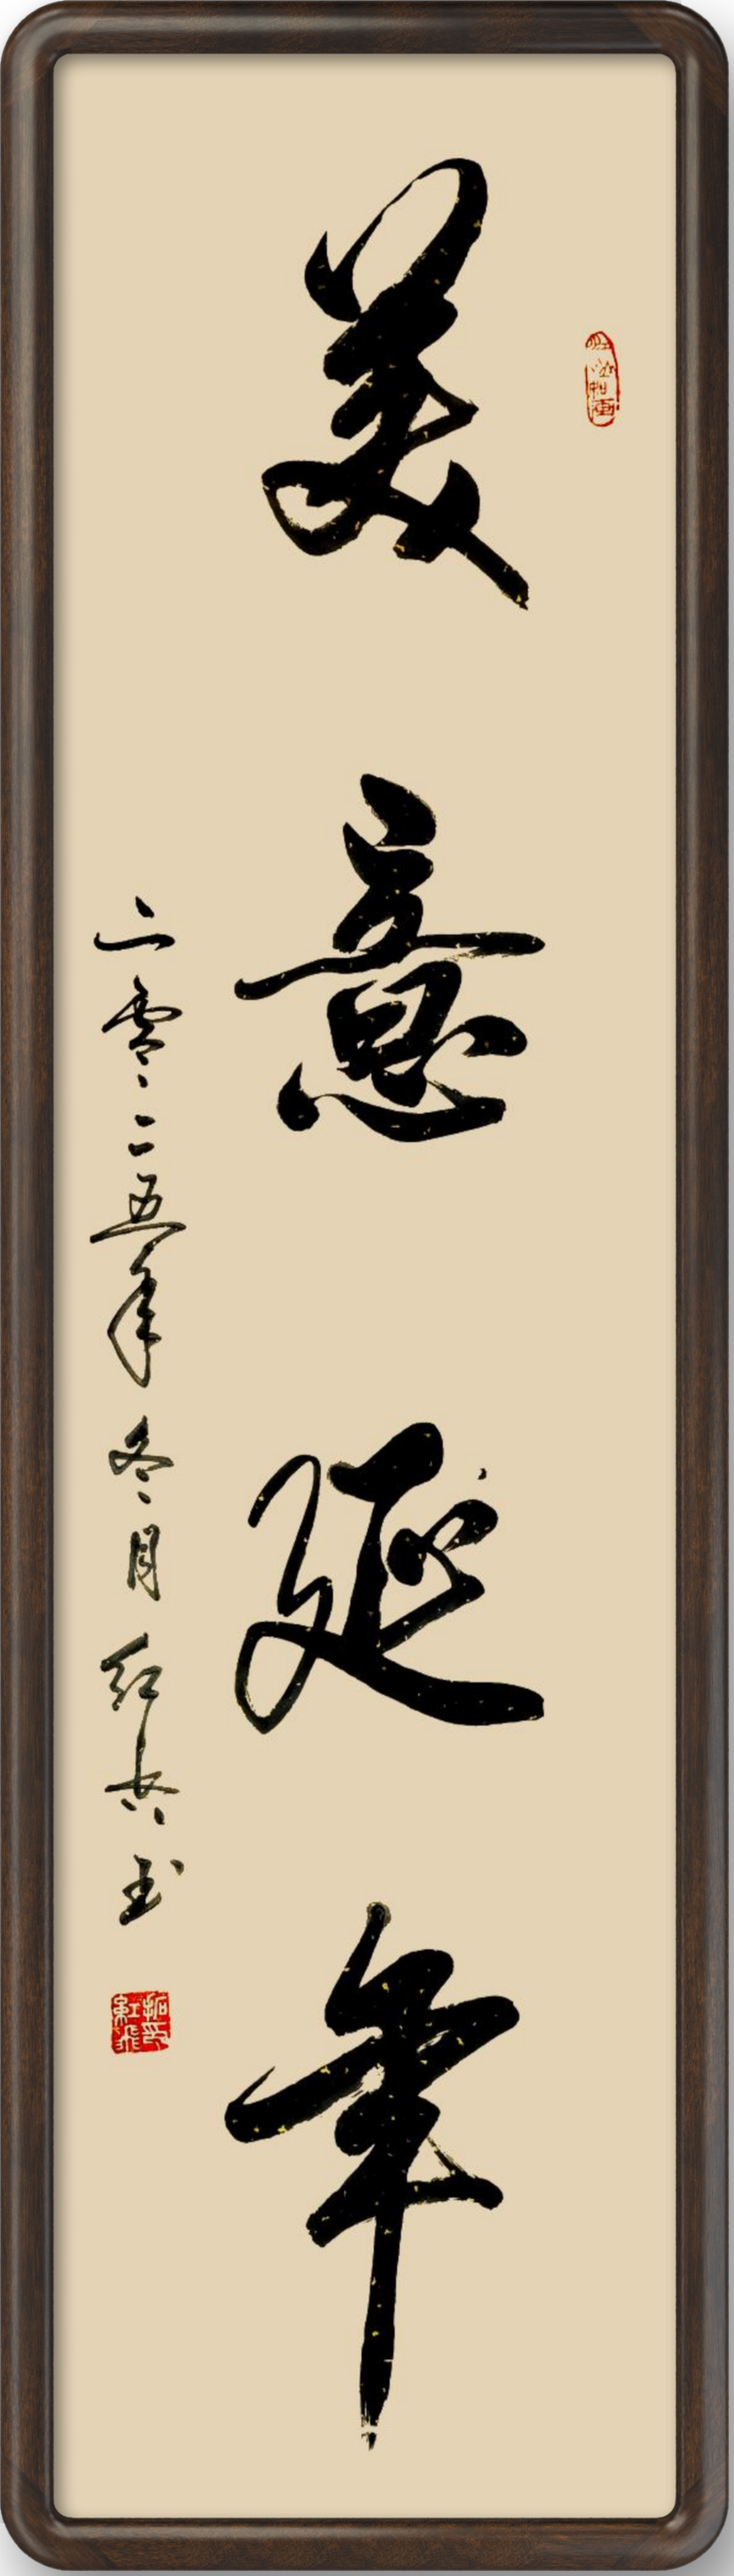 美意延年
二零二五年冬月红兵书